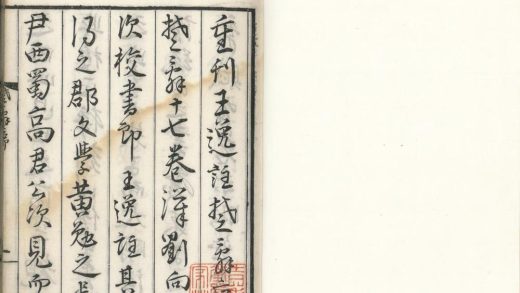 重刊王逸註楚辭序
楚辭十七卷漢劉向
次校書郎王逸註其
得之郡文學黃勉之長
尹西蜀高君公次見而